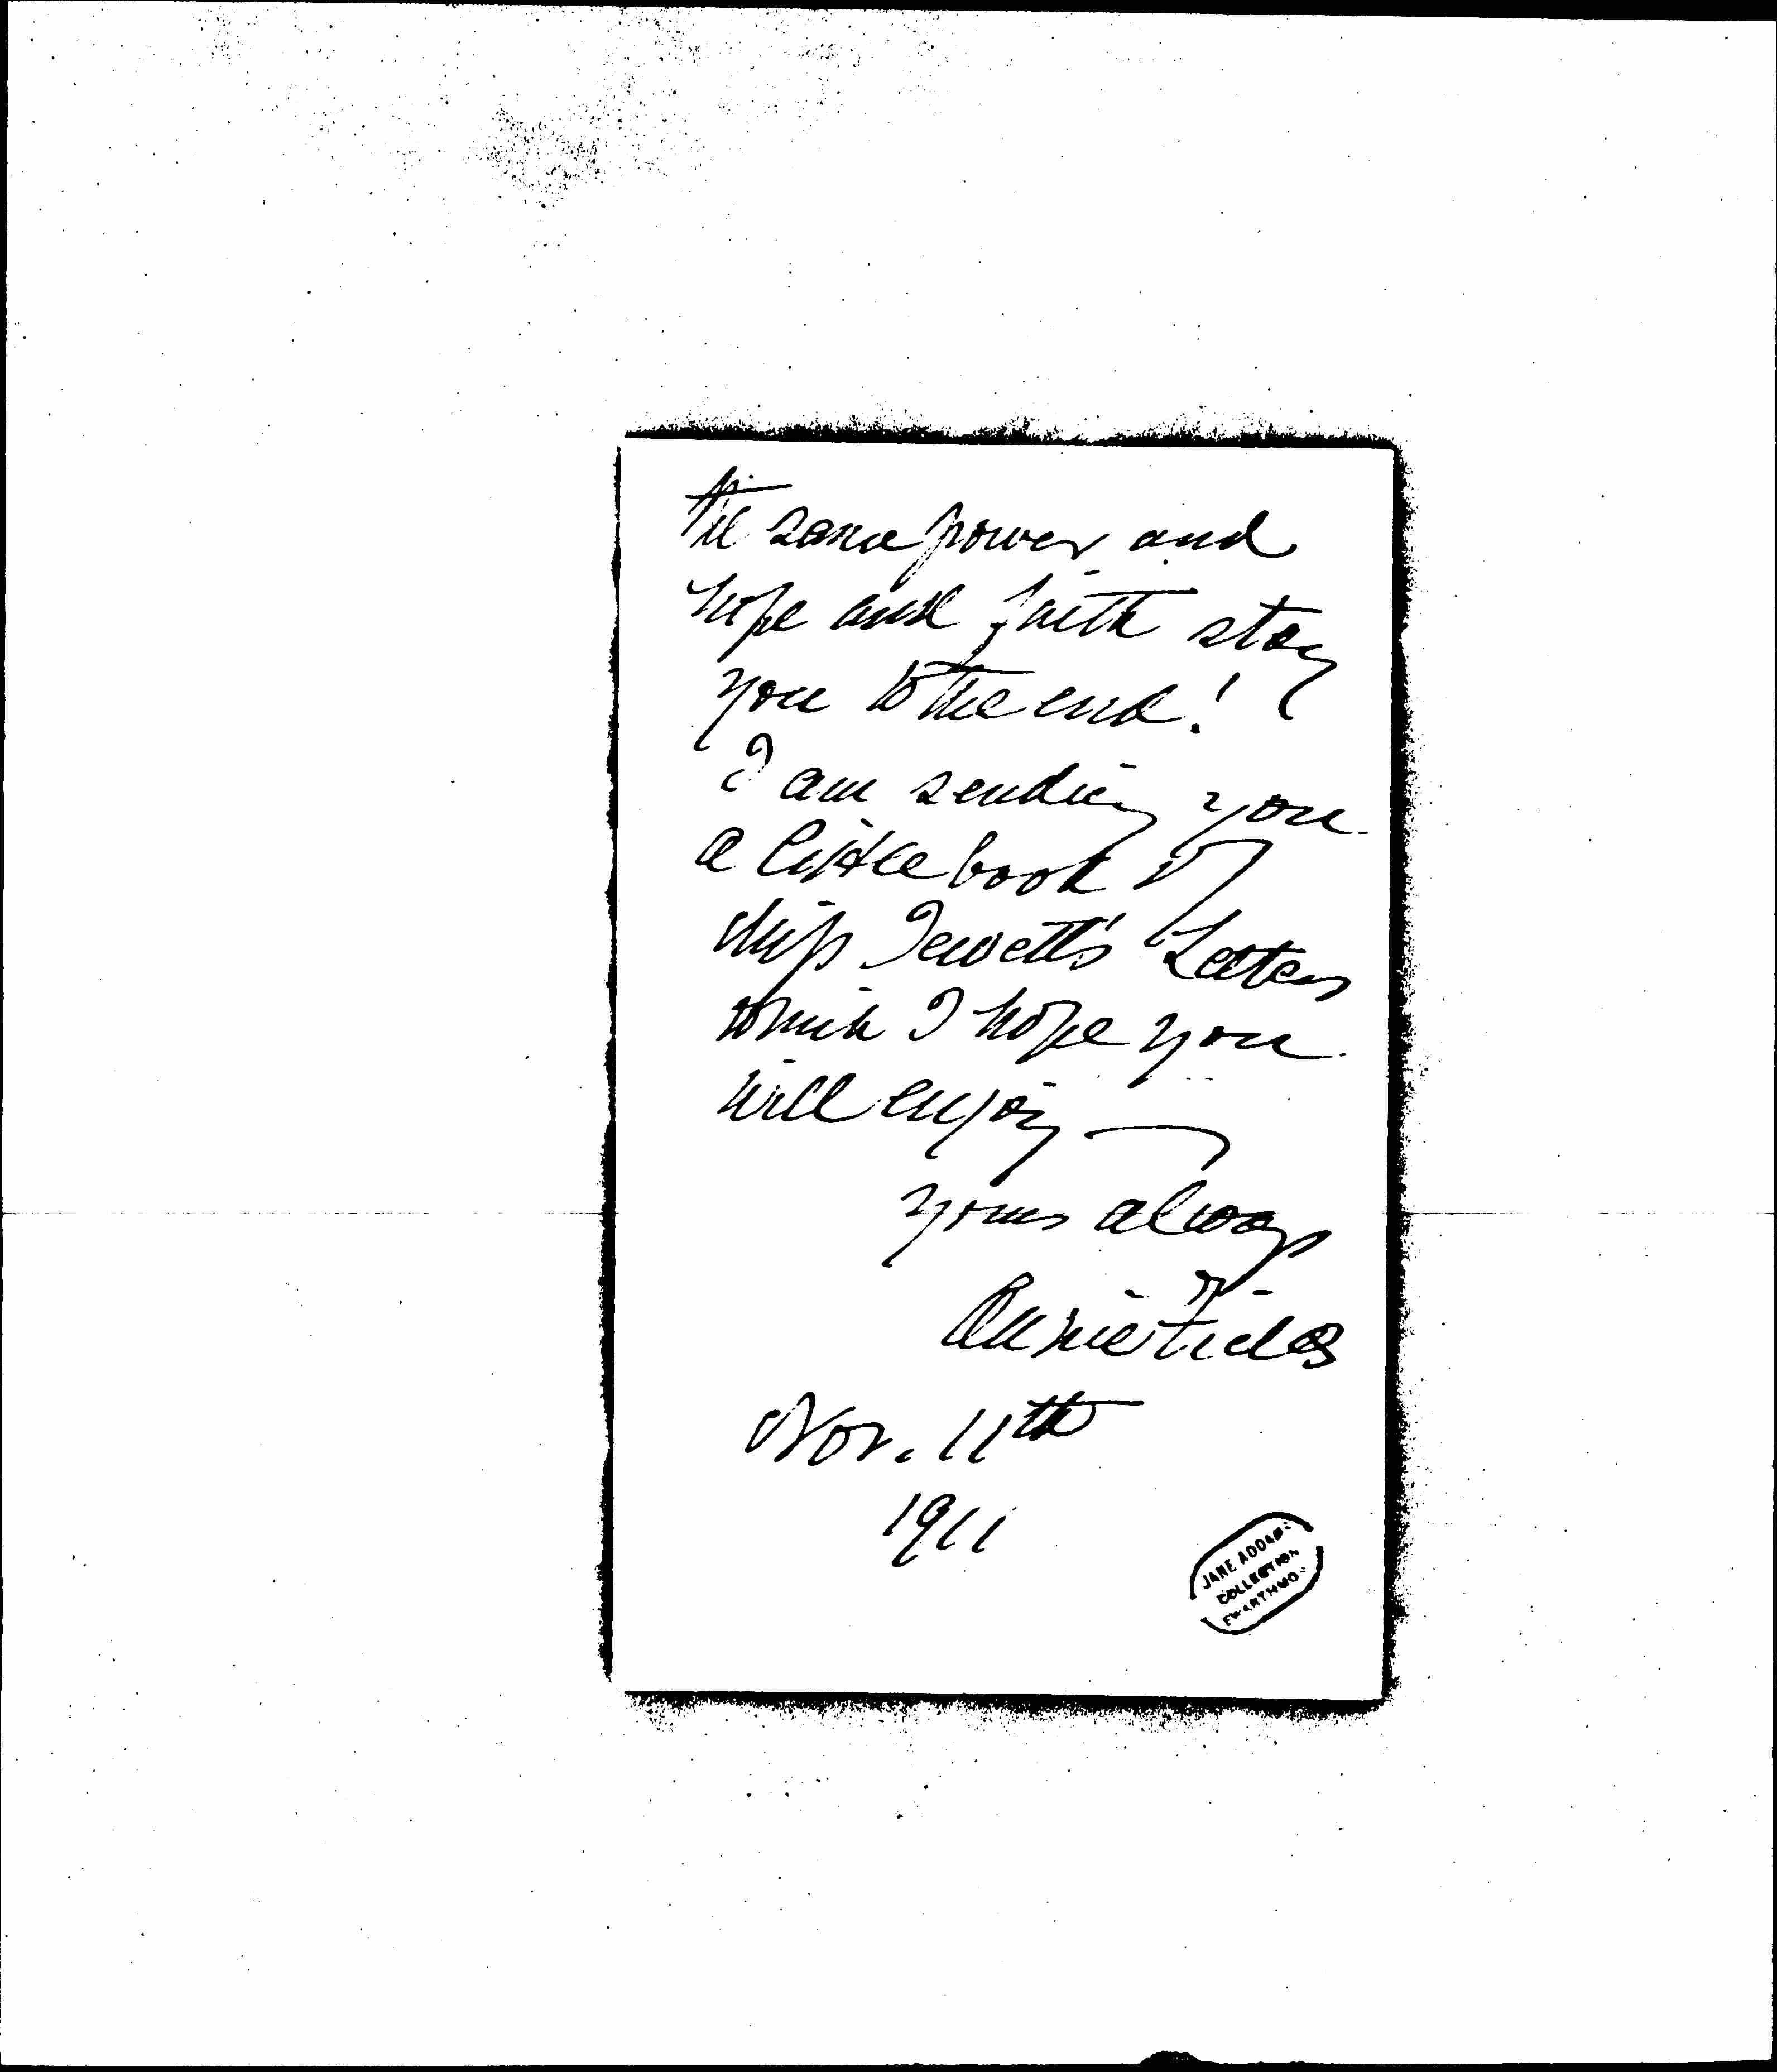 the same power and
hope and faith stay
you to the end!
I am sending you
a little book of
Miss Jewett's Letters
which I hope you
will enjoy —
Yours always
Annie Fields
Nov. 11th
1911
JANE ADDAMS
COLLECTION
SWARTHMO